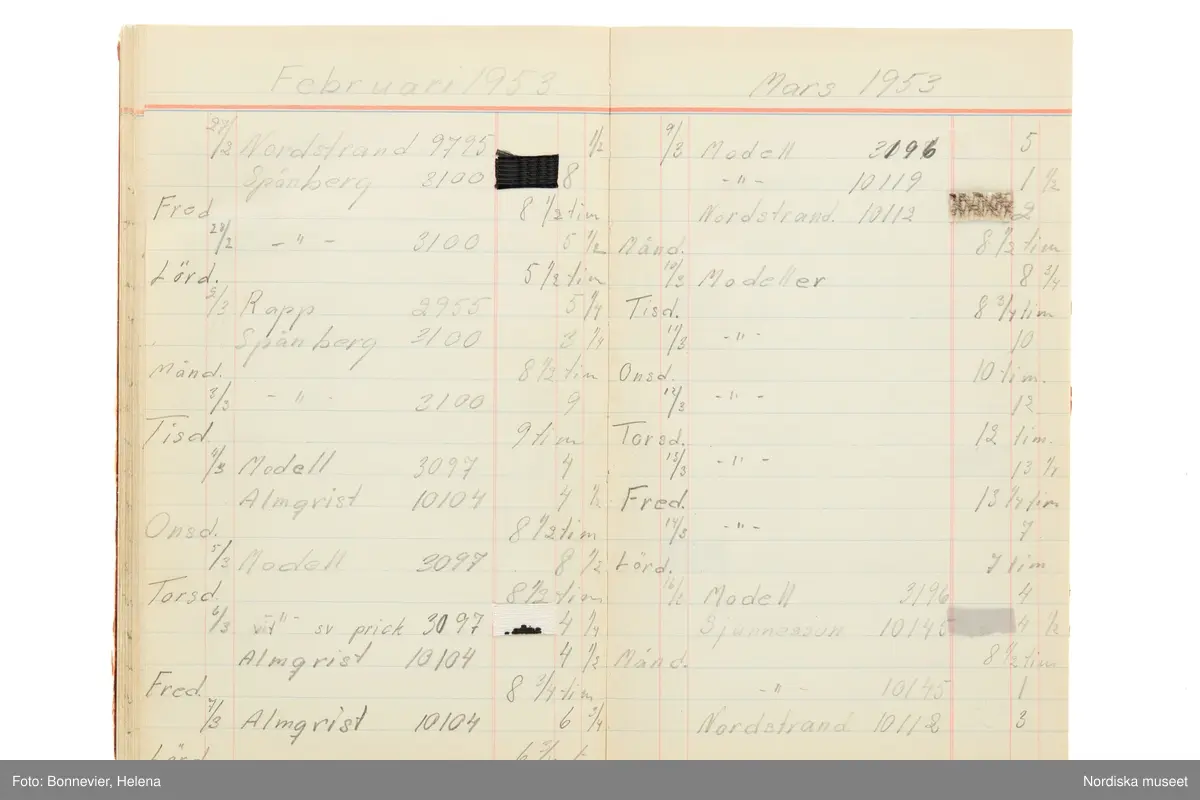 Februari 1953
27/2 Nordstrand 9795 1/2
Spånberg 3100 8
Fred 8 1/2 tim
28/2 - " - 3100 5 1/2
Lörd. 5 1/2 tim
2/3 Rapp 2955 5 1/4
Spånberg 3100 3 1/4
Månd. 8 1/2 tim
3/3 - " - 3100 9
Tisd. 9 tim
4/3 Modell 3097 4
Almqrist 10104 4 1/2
Onsd. 8 1/2 tim
5/3 Modell 3097 8 1/2
Torsd. 8 1/2 tim
6/3 sv prick 3097 4 1/4
Almqrist 10104 4 1/2
Fred. 8 3/4 tim
7/3 Almqrist 10104 6 3/4
Lörd.
Mars 1953
9/3 Modell 3196 5
- " - 10119 1 1/2
Nordstrand. 10112 2
Månd. 8 1/2 tim
10/3 Modeller 8 3/4
Tisd. 8 3/4 tim
11/3 - " - 10
Onsd. 10 tim.
12/3 - " - 12
Torsd. 12 tim.
13/3 - " - 13 1/4
Fred. 13 1/4 tim
14/3 - " - 7
Lörd. 7 tim
Modell 3196 4
Sjunnesson 10145 4 1/2
Månd. 8 1/2 tim
- " - 10145 1
Nordstrand 10112 3
Foto: Bonnevier, Helena
Nordiska museet